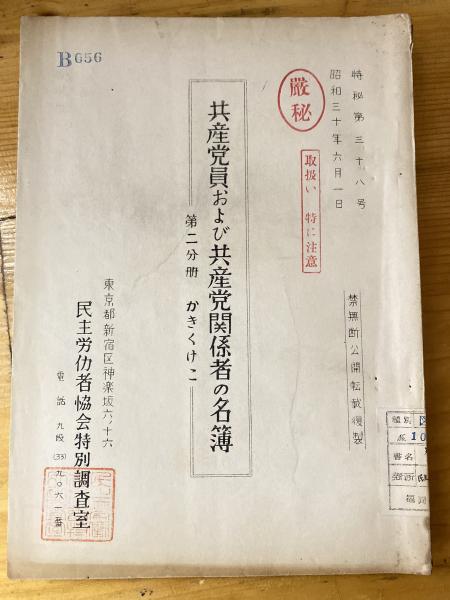 B656
特秘第三十八号
昭和三十年六月一日
厳秘
取扱い 特に注意
禁無断公開転載複製
共産党員および共産党関係者の名簿
第二分冊 かきくけこ
東京都新宿区神楽坂六ノ十六
民主労仂者協会特別調査室
電話 九段(33)九〇六一番
種別
10
書名